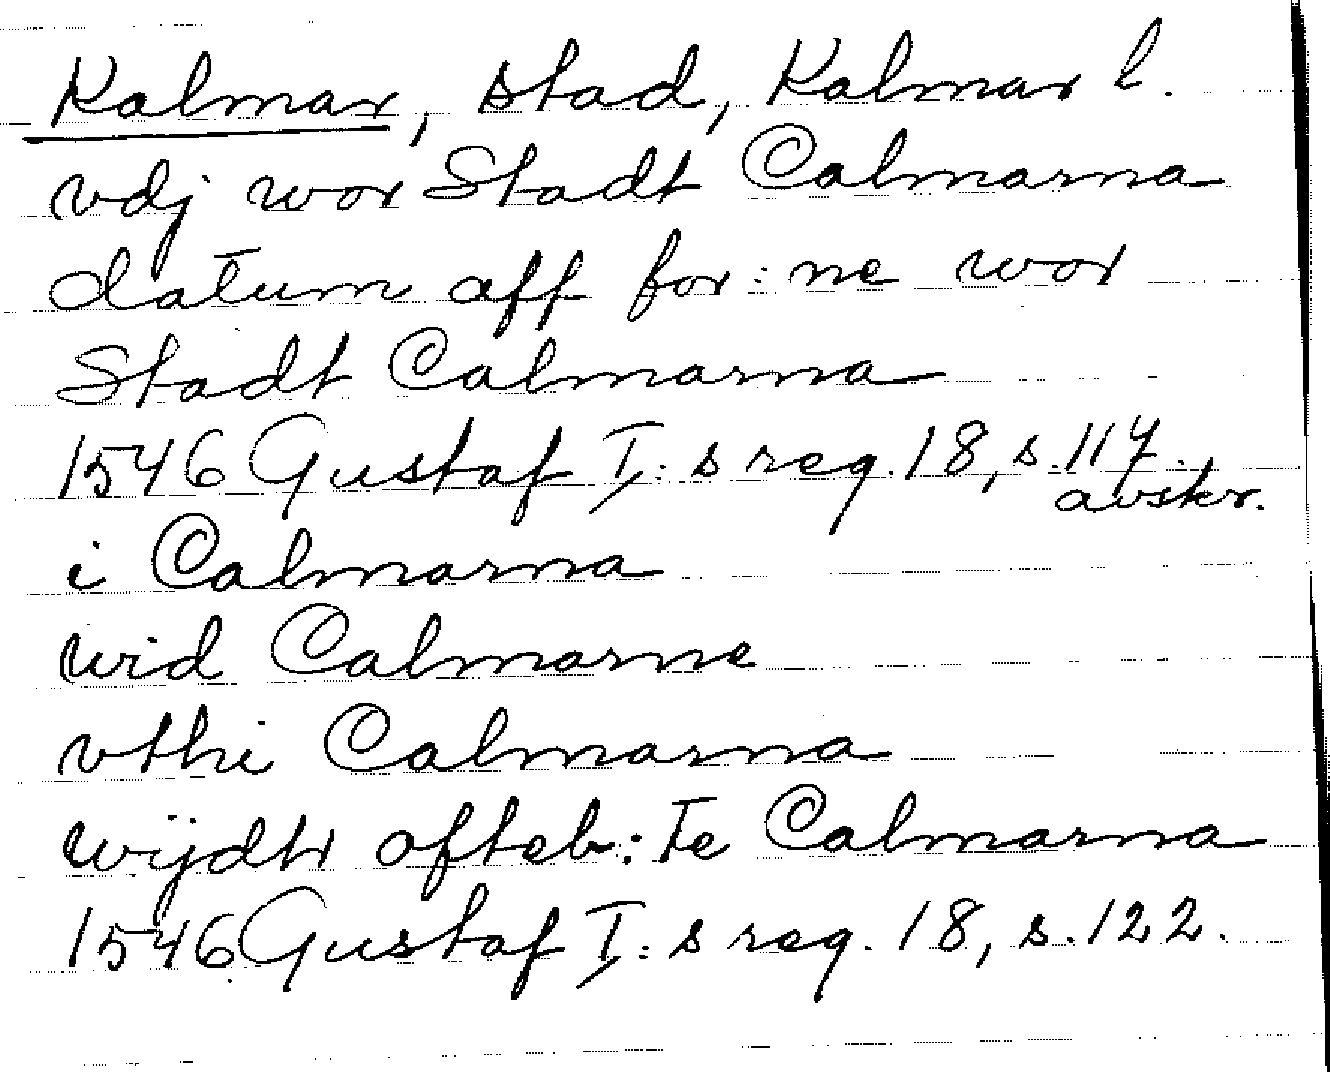 Kalmar, stad, Kalmar l.
vdj wor Stadt Calmarna
datum aff for:ne wor
Stadt Calmarna
1546 Gustaf I:s reg. 18, s. 117.
avskr.
i Calmarna
wid Calmarne
vthi Calmarna
wijdtr ofteb:te Calmarna
1546 Gustaf I:s reg. 18, s. 122.